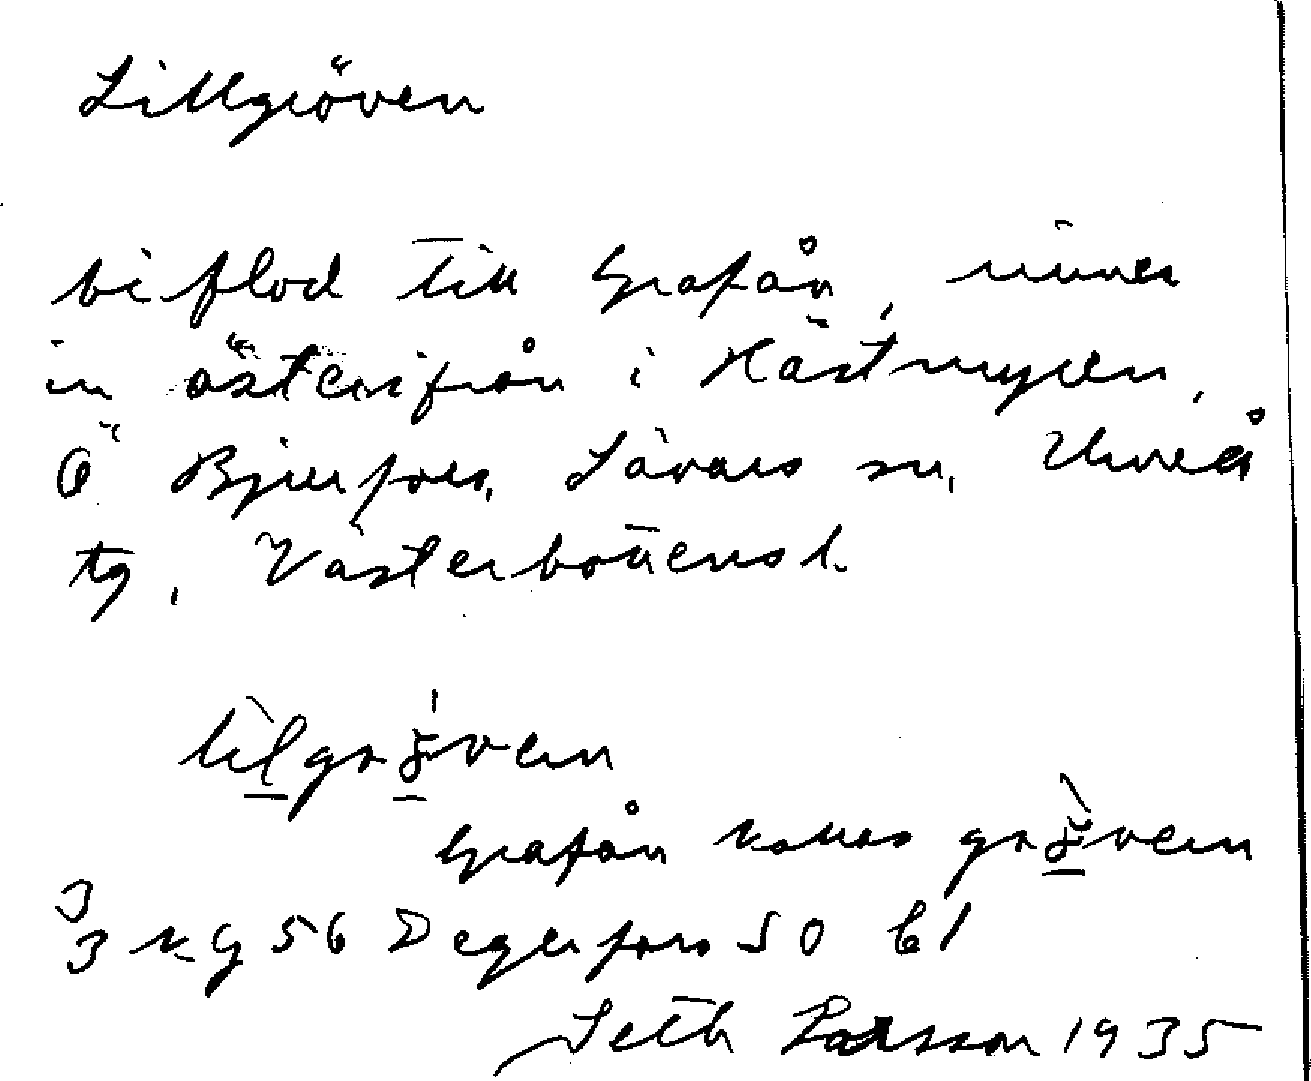 Lillgröven
biflod till Grafån, rinner
in österifrån i Hästmyren,
Ö Bjurfors, Lövars sn, Umeå
tg, Västerbottens l.
lilgrövein
Grafån kallas grövein
3
3 kg 56 Degerfors SO b1
Seth Larsson 1935